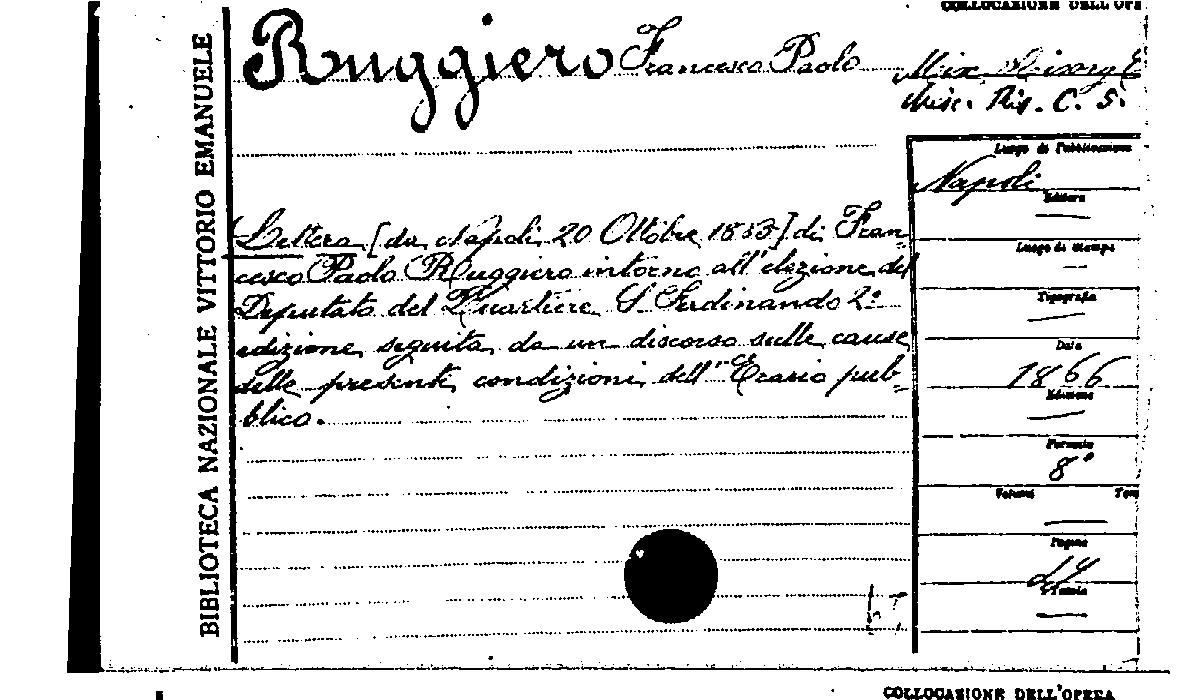 COLLOCAZIONE DELL'OPE
BIBLIOTECA NAZIONALE VITTORIO EMANUELE
Ruggiero Francesco Paolo
Misc. Ris. C. S.
Luogo di Pubblicazione
Napoli
Editore
Lettera [da Napoli 20 Ottobre 1863] di Fran-
Luogo di stampa
cesco Paolo Ruggiero intorno all'elezione del
Deputato del Quartiere S. Ferdinando 2ª
Tipografia
edizione seguita da un discorso sulle cause
Data
1866
delle presenti condizioni dell'Erario pub-
Edizione
blico.
Formato
8°
Volumi Tom
Pagine
44
Tavole
COLLOCAZIONE DELL'OPERA